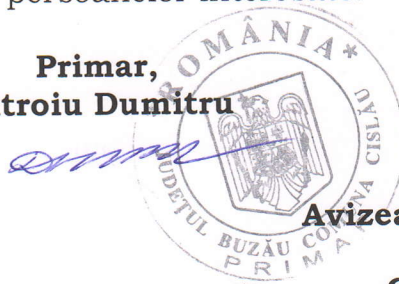 persoanelor
Primar,
troiu Dumitru
ROMÂNIA *
JUDEȚUL BUZĂU COMUNA CISLĂU
PRIMAR
Avizea